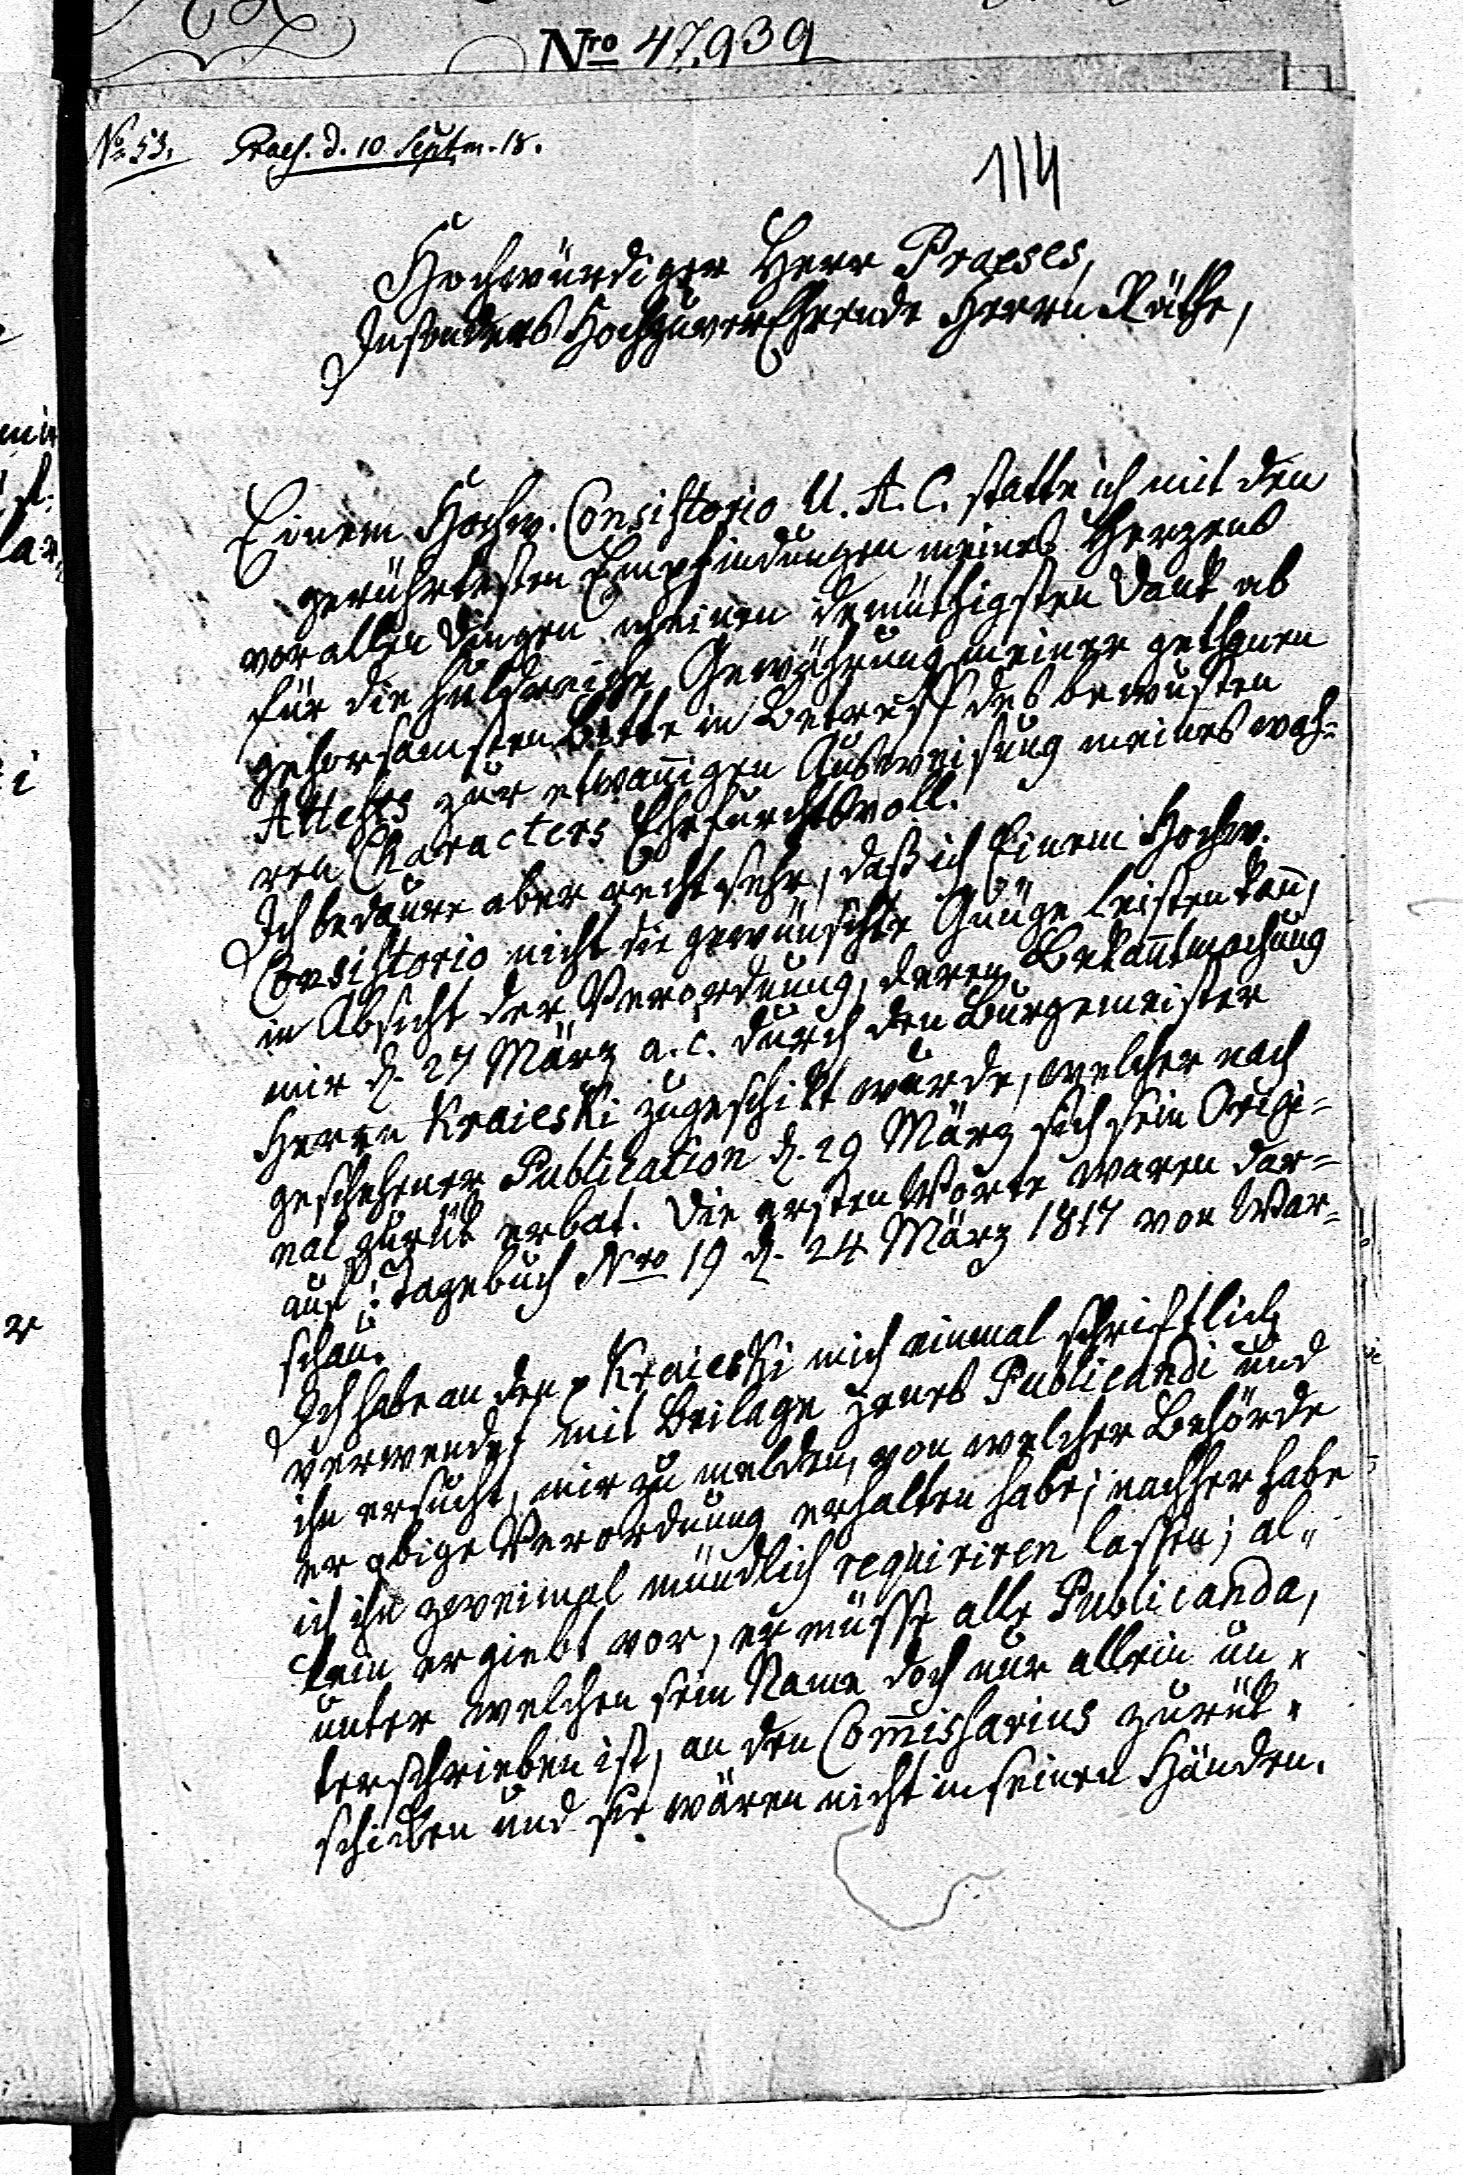 Nro 47,939
No 53. Praes. d. 10 Septm. 18.
114
Hochwürdiger Herr Praeses,
Insonders Hochzuverehrende Herrn Räthe,
Einem Hochw. Consistorio U. A. C. statte ich mit den
gerührtesten Empfindungen meines Herzens
vor allen Dingen meinen demüthigsten Dank ab
für die hülfreiche Gewährung meiner gethanen
gehorsamsten Bitte in Betreff des bewußten
Attests zur etwanigen Ausweisung meines wah=
ren Characters Ehrfurchtsvoll.
Ich bedaure aber recht sehr, daß ich Einem Hochw.
Consistorio nicht die gewünschte Gnüge leisten kañ,
in Absicht der Verordnung, deren Bekañtmachung
mir d. 27 März a. c. durch den Burgemeister
Herrn Kraieski zugeschikt wurde, welcher nach
geschehener Publication d. 29 März sich sein Origi=
nal zurük erbat. Die ersten Worte waren dar=
auf: Tagebuch Nro 19 d. 24 März 1817 von War=
schau.
Ich habe an den Kraieski mich einmal schriftlich
verwendet mit Beilage jenes Publicandi und
ihn ersucht, mir zu melden, von welcher Behörde
er obige Verordnung erhalten habe; nachher habe
ich ihn zweimal mündlich requiriren lassen; al„
lein er giebt vor, er müsse alle Publicanda,
unter welchen sein Name doch nur allein un„
terschrieben ist, an den Com̃issarius zurük„
schicken und sie wären nicht in seinen Händen.